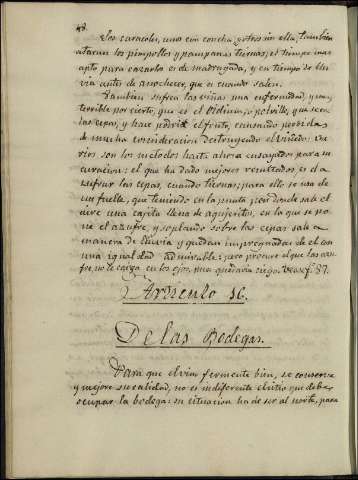 48.
Los caracoles, unos con concha, y otros sin ella, tambien
atacan los pimpollos y pampanas tiernas; el tiempo mas
apto para cazarlos es de madrugada, y en tiempo de llu-
via antes de anochecer, que es cuando salen.
Tambien sufren las viñas una enfermedad, y muy
terrible por cierto, que es el Oidium, ó polvillo, que seca
las cepas, y hace podrir el fruto, causando perdidas
de mucha consideracion destruyendo el viñedo: va-
rios son los metodos hasta ahora ensayados para su
curacion: el que ha dado mejores resultados, es el a-
zufrar las cepas, cuando tiernas; para ello se usa de
un fuelle, que teniendo en la punta por donde sale el
aire una cajita llena de agujeritos, en la que se po-
ne el azufre, y soplando sobre las cepas sale a
manera de lluvia y quedan impregnadas de el con
una igualdad admirable: pero procure el que las azu-
fre, no le caiga en los ojos, pues quedaria ciego.
Articulo
De las Bodegas.
Para que el vino fermente bien, se conserve
y mejore su calidad, no es indiferente el sitio que debe
ocupar la bodega: su situacion ha de ser al norte, para